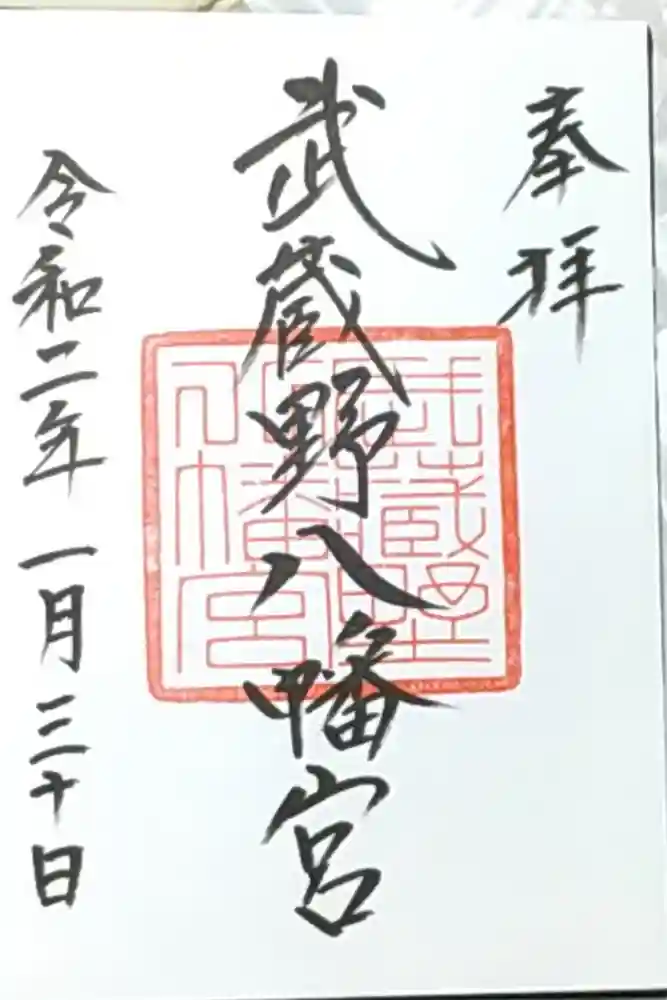 奉拝
武蔵野八幡宮
武蔵野
八幡宮
令和二年一月三十日